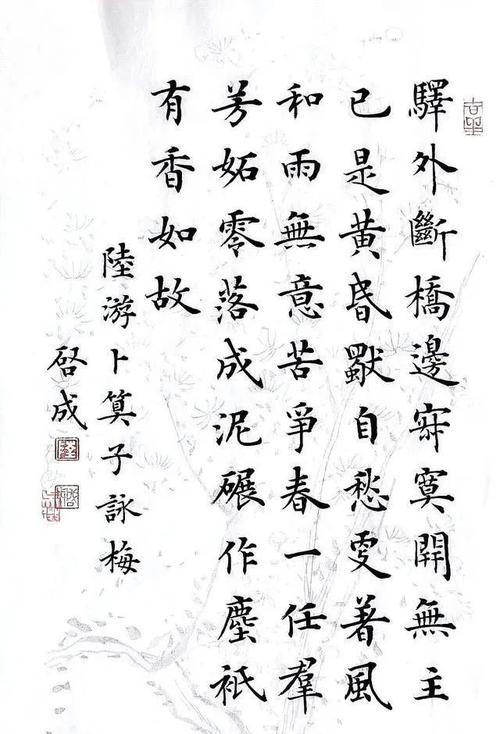 驛外斷橋邊寂寞開無主
已是黃昏獨自愁更著風
和雨無意苦爭春一任羣
芳妬零落成泥碾作塵祇
有香如故
陸游卜算子詠梅
啓成